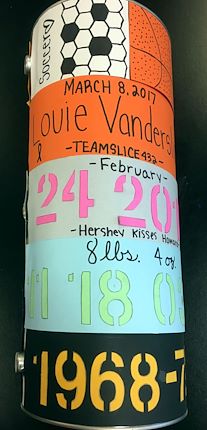 Soccer
MARCH 8, 2017
Louie Vanders
-TEAMSLICE432-
-February-
24 201
-Hershey Kisses
8 lbs. 4 oz.
'18 0
1968-7